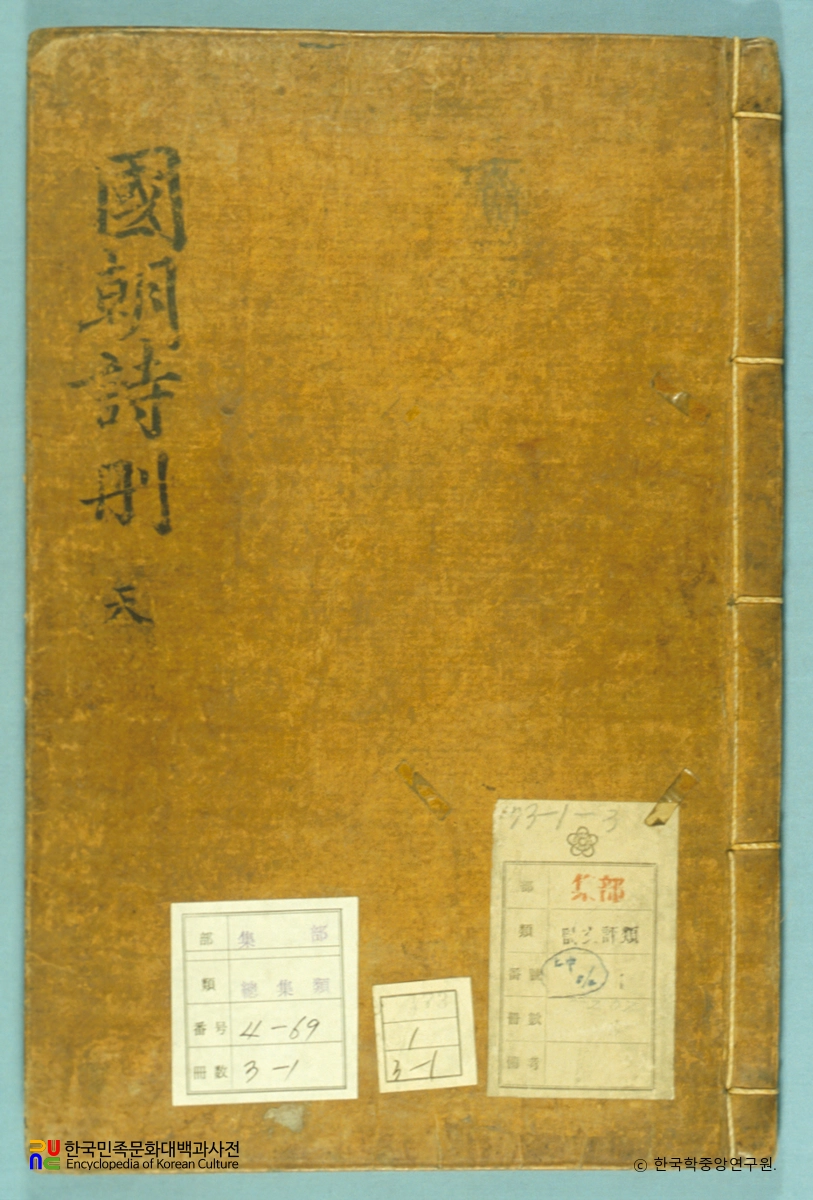 國朝詩刪 天
73-1-3
部 集部
類
部 集部
類 總集類
番号 4-69
冊数 3-1
1
3-1
한국민족문화대백과사전
Encyclopedia of Korean Culture
© 한국학중앙연구원.